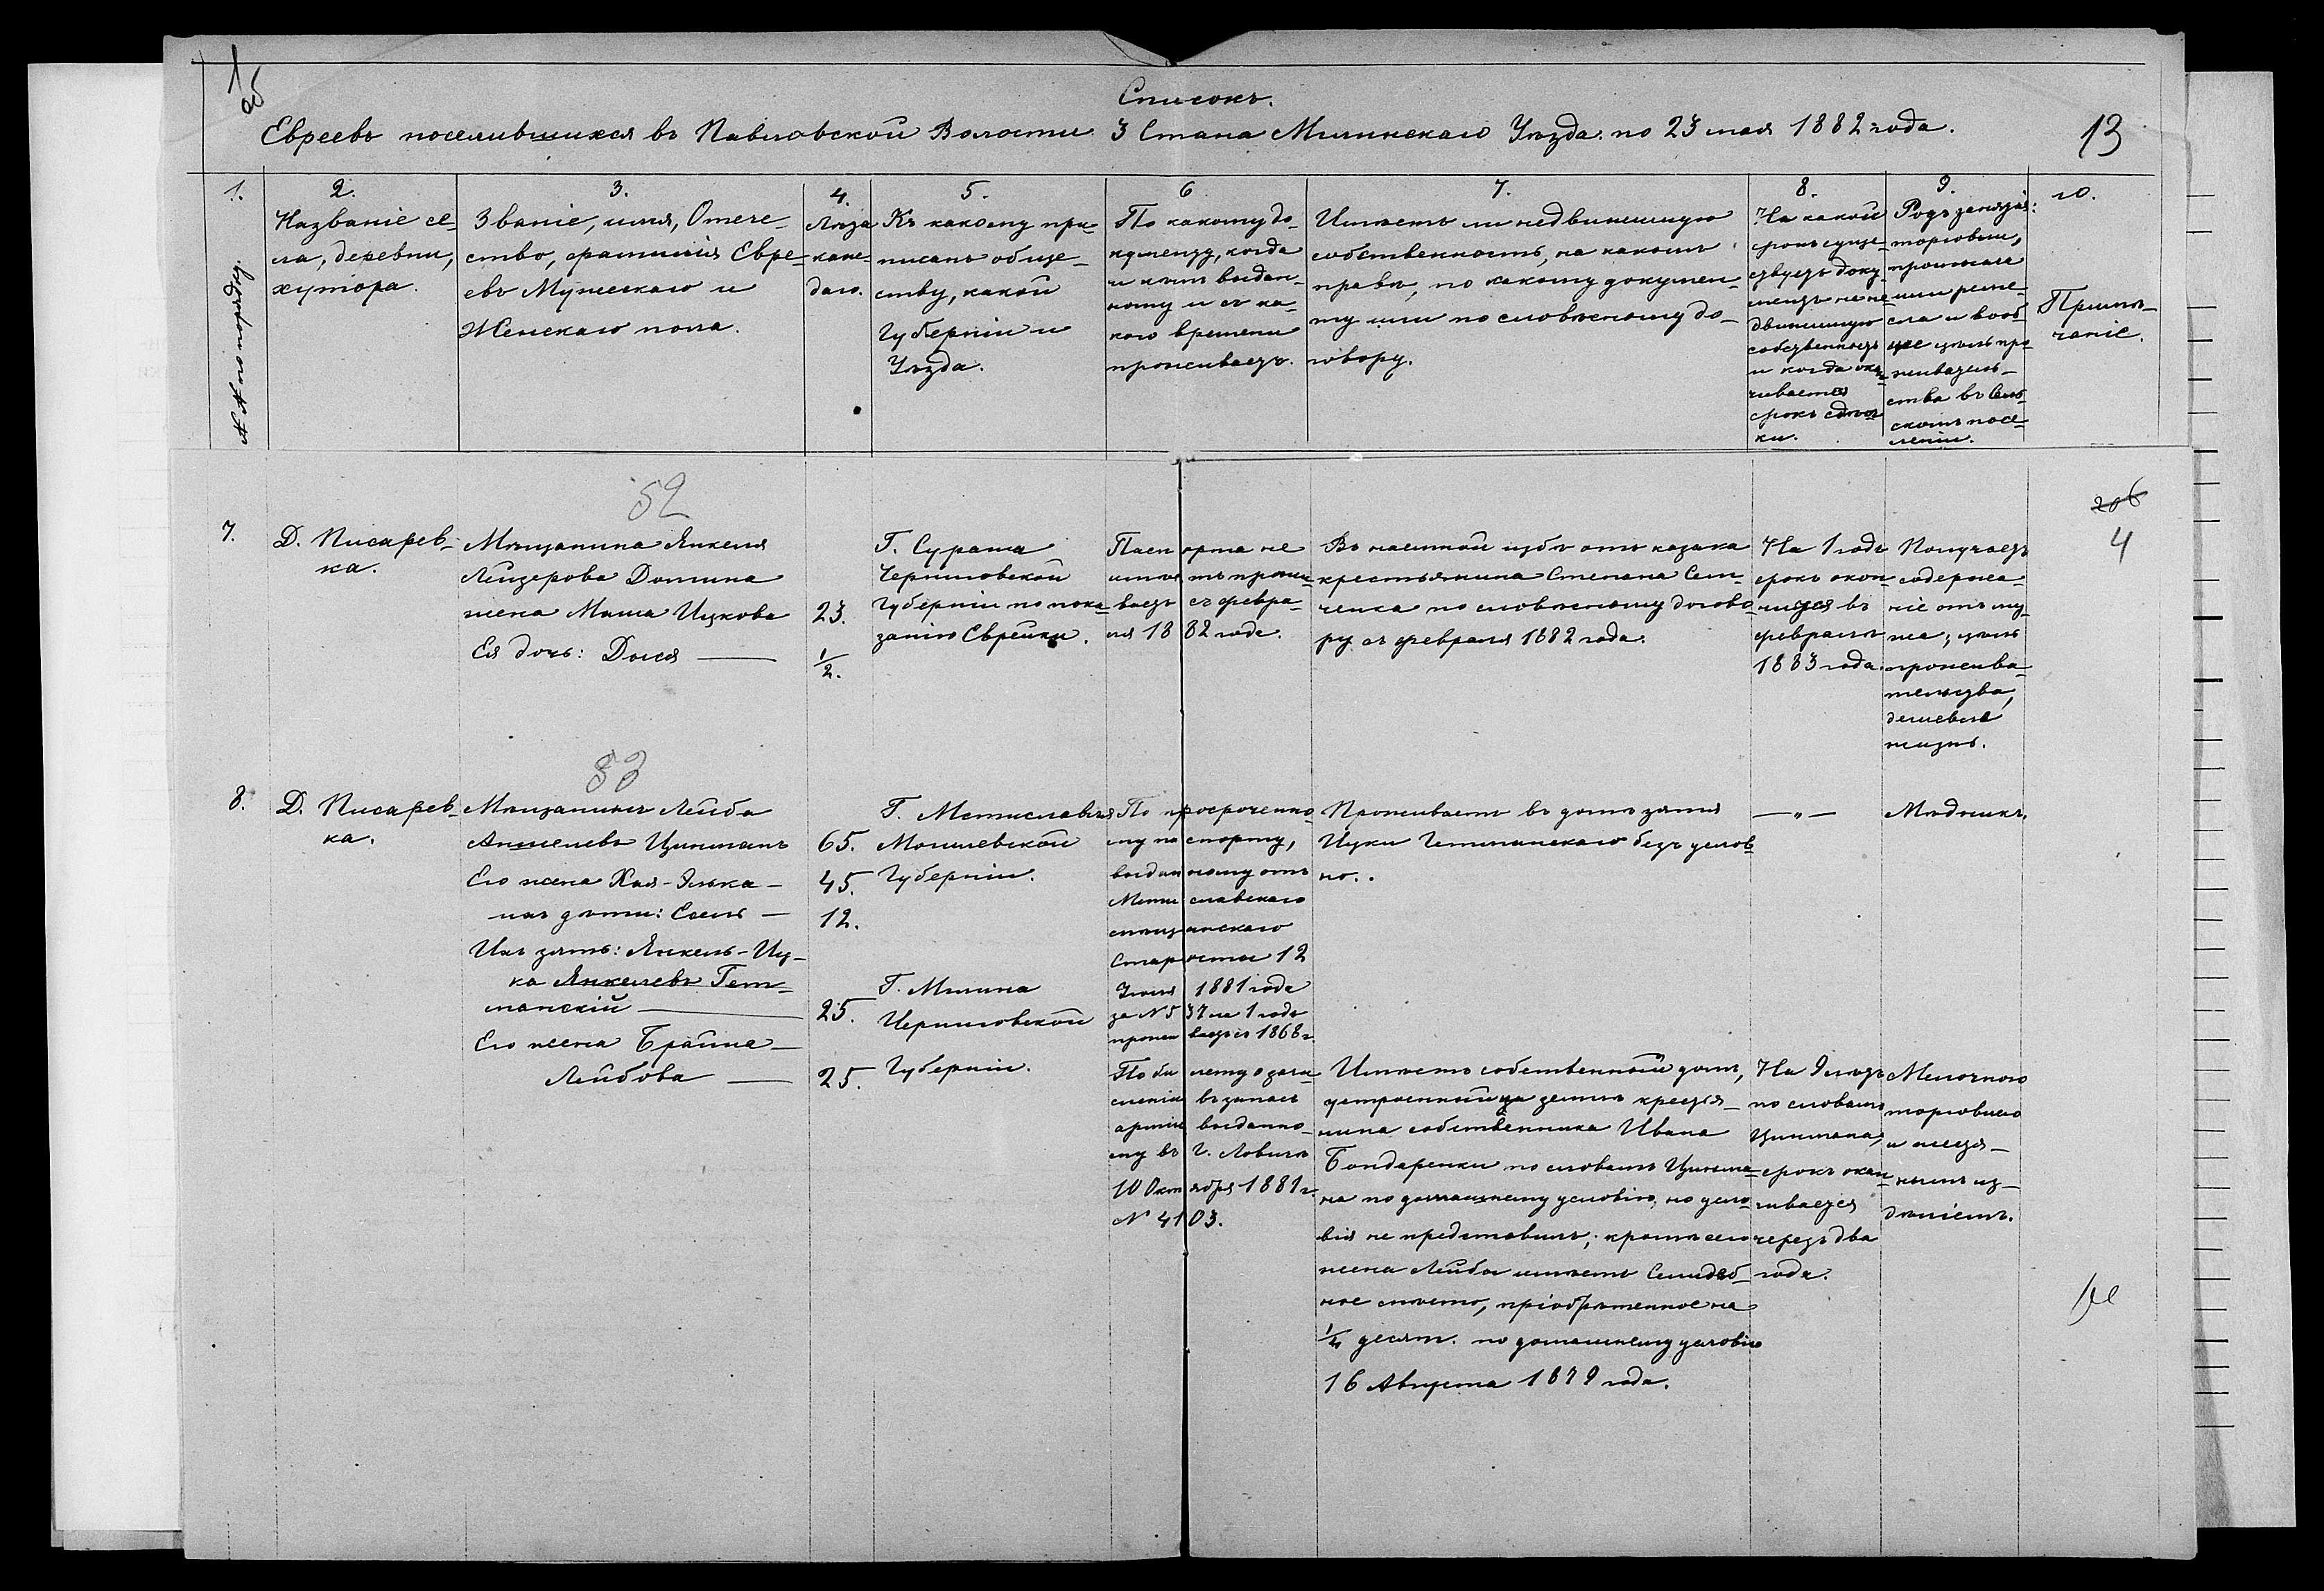 Списокъ.
Евреевъ поселившихся въ Павловской Волости 3 Стана Мглинскаго Уѣзда по 23 мая 1882 года.
13
1.
№№ по порядку.
2.
Названіе се-
ла, деревни,
хутора.
3.
Званіе, имя, Отече-
ство, фамилія Евре-
евъ Мужескаго и
Женскаго пола.
4.
Лѣта
каж-
даго.
5.
Къ какому при-
писанъ обще-
ству, какой
Губерніи и
Уѣзда.
6
По какому до-
кументу, когда
и кѣмъ выдан-
ному и съ ка-
кого времени
проживаетъ.
7.
Имѣетъ ли недвижимую
собственность, на какомъ
правѣ, по какому докумен-
ту или по словесному до-
говору.
8.
На какой
срокъ суще-
ствуетъ доку-
ментъ на не-
движимую
собственность
и когда окан-
чивается
срокъ сдѣл-
ки.
9.
Родъ занятія:
торговли,
промысла
или реме-
сла и вооб-
ще цѣль про-
живатель-
ства въ Сель-
скомъ посе-
леніи.
10.
Примѣ-
чаніе.
52
206
4
7.
Д. Писарев-
ка.
Мѣщанина Янкеля
Лейзерова Домина
жена Маша Ицкова
Ея дочь: Дыся —
23.
1/2.
Г. Суража
Черниговской
Губерніи по пока-
занію Еврейки.
Паспорта не
имѣетъ прожи-
ваетъ съ февра-
ля 1882 года.
Въ наемной избѣ отъ казака
крестьянина Степана Сем-
ченка по словесному догово-
ру съ февраля 1882 года.
На 1 годъ
срокъ окон-
чится въ
февралѣ
1883 года.
Получаетъ
содержа-
ніе отъ му-
жа, цѣль
прожива-
тельства,
дешевая
жизнь.
53
8.
Д. Писарев-
ка.
Мѣщанинъ Лейба
Аншелевъ Циншанъ
Его жена Хая-Элька —
ихъ дѣти: Есель —
Ихъ зять: Янкель-Иц-
ка Янкелевъ Гет-
манскій —
Его жена Брайна —
Лейбова —
65.
45.
12.
25.
25.
Г. Мстиславля
Могилевской
Губерніи.
Г. Мглина
Черниговской
Губерніи.
По просроченно-
му паспорту,
выданному отъ
Мстиславскаго
мѣщанскаго
Старосты 12
Іюля 1881 года
за № 537 на 1 годъ
проживаетъ съ 1868 г.
По билету о зачи-
сленіи въ запасъ
арміи выданно-
му въ г. Ловичѣ
10 Октября 1881 г.
№ 4103.
Проживаетъ въ домѣ зятя
Ицки Гетманскаго безъ услов-
но.
Имѣетъ собственный домъ,
устроенный на землѣ крестья-
нина собственника Ивана
Бондаренки по словамъ Циншма-
на по домашнему условію, но усло-
вія не представилъ; кромѣ сего
жена Лейбы имѣетъ Семидеб-
ное мѣсто, пріобрѣтенное на
1/4 десят. по домашнему условію
16 Августа 1879 года.
— " —
На 9 лѣтъ
по словамъ
Циншмана,
срокъ окан-
чивается
черезъ два
года.
Мѣдникъ.
Мелочною
торговлею
и жестя-
нымъ из-
дѣліемъ.